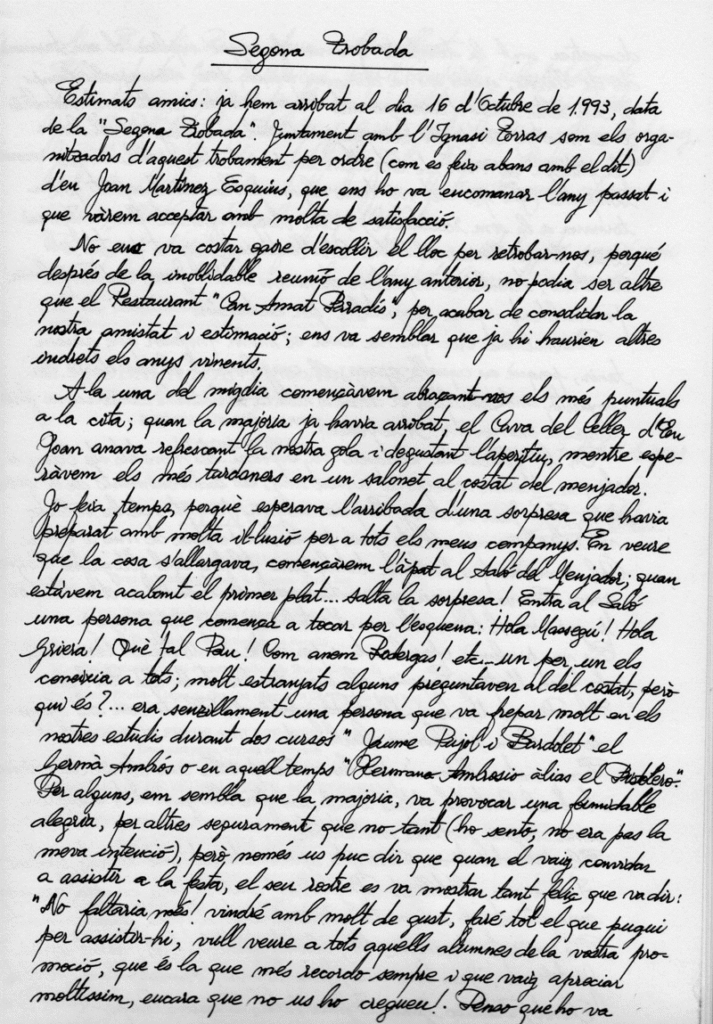 Segona Trobada
Estimats amics: ja hem arribat al dia 16 d'Octubre de 1.993, data
de la "Segona Trobada". Juntament amb l'Ignasi Torras som els orga-
nitzadors d'aquest trobament per ordre (com es feia abans amb el dit)
d'en Joan Martínez Esquius, que ens ho va encomanar l'any passat i
que vàrem acceptar amb molta de satisfacció.
No ens va costar gaire d'escollir el lloc per retrobar-nos, perquè
després de la inoblidable reunió de l'any anterior, no podia ser altre
que el Restaurant "Can Amat Parradís", per acabar de consolidar la
nostra amistat i estimació; ens va semblar que ja hi haurien altres
indrets els anys vinents.
A la una del migdia començàvem abraçant-nos els més puntuals
a la cita; quan la majoria ja havia arribat, el Cava del Celler d'en
Joan anava refrescant la nostra gola i degustant l'aperitiu, mentre espe-
ràvem els més tardaners en un salonet al costat del menjador.
Jo feia temps, perquè esperava l'arribada d'una sorpresa que havia
preparat amb molta il·lusió per a tots els meus companys. En veure
que la cosa s'allargava, començàrem l'àpat al Saló del Menjador; quan
estàvem acabant el primer plat... salta la sorpresa! Entra al Saló
una persona que comença a tocar per l'esquena: Hola Masseguí! Hola
Griera! Què tal Pau! Com anem Rodergas! etc... un per un els
coneixia a tots; molt estranyats alguns preguntaven al del costat, però
qui és?... era senzillament una persona que va trepar molt en els
nostres estudis durant dos cursos "Jaume Pujol i Bardolet" el
Germà Ambrós o en aquell temps "Hermano Ambrosio àlias el Pistolero".
Per alguns, em sembla que la majoria, va provocar una formidable
alegria, per altres segurament que no tant (ho sento, no era pas la
meva intenció), però només us puc dir que quan el vaig convidar
a assistir a la festa, el seu rostre es va mostrar tant feliç que va dir:
"No faltaria més! vindré amb molt de gust, faré tot el que pugui
per assistir-hi, vull veure a tots aquells alumnes de la vostra pro-
moció, que és la que més recordo sempre i que vaig apreciar
moltíssim, encara que no us ho cregueu!. Penso que ho va